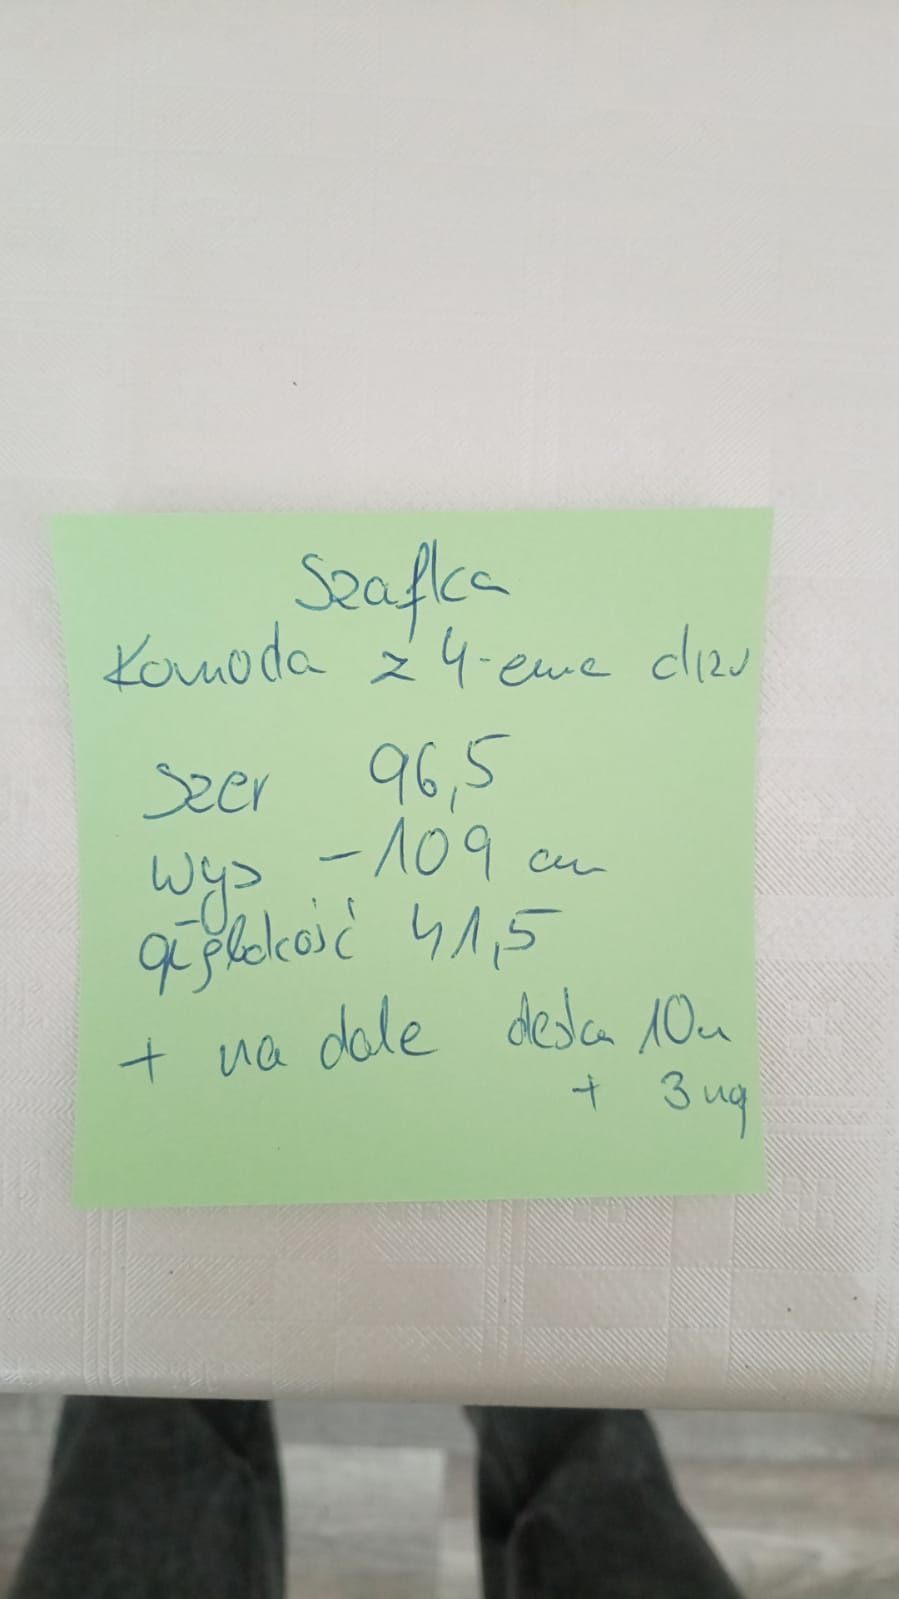 Szafka
Komoda z 4-ema drzw
Szer 96,5
wys - 109 cm
głębokość 41,5
+ na dole deska 10
+ 3